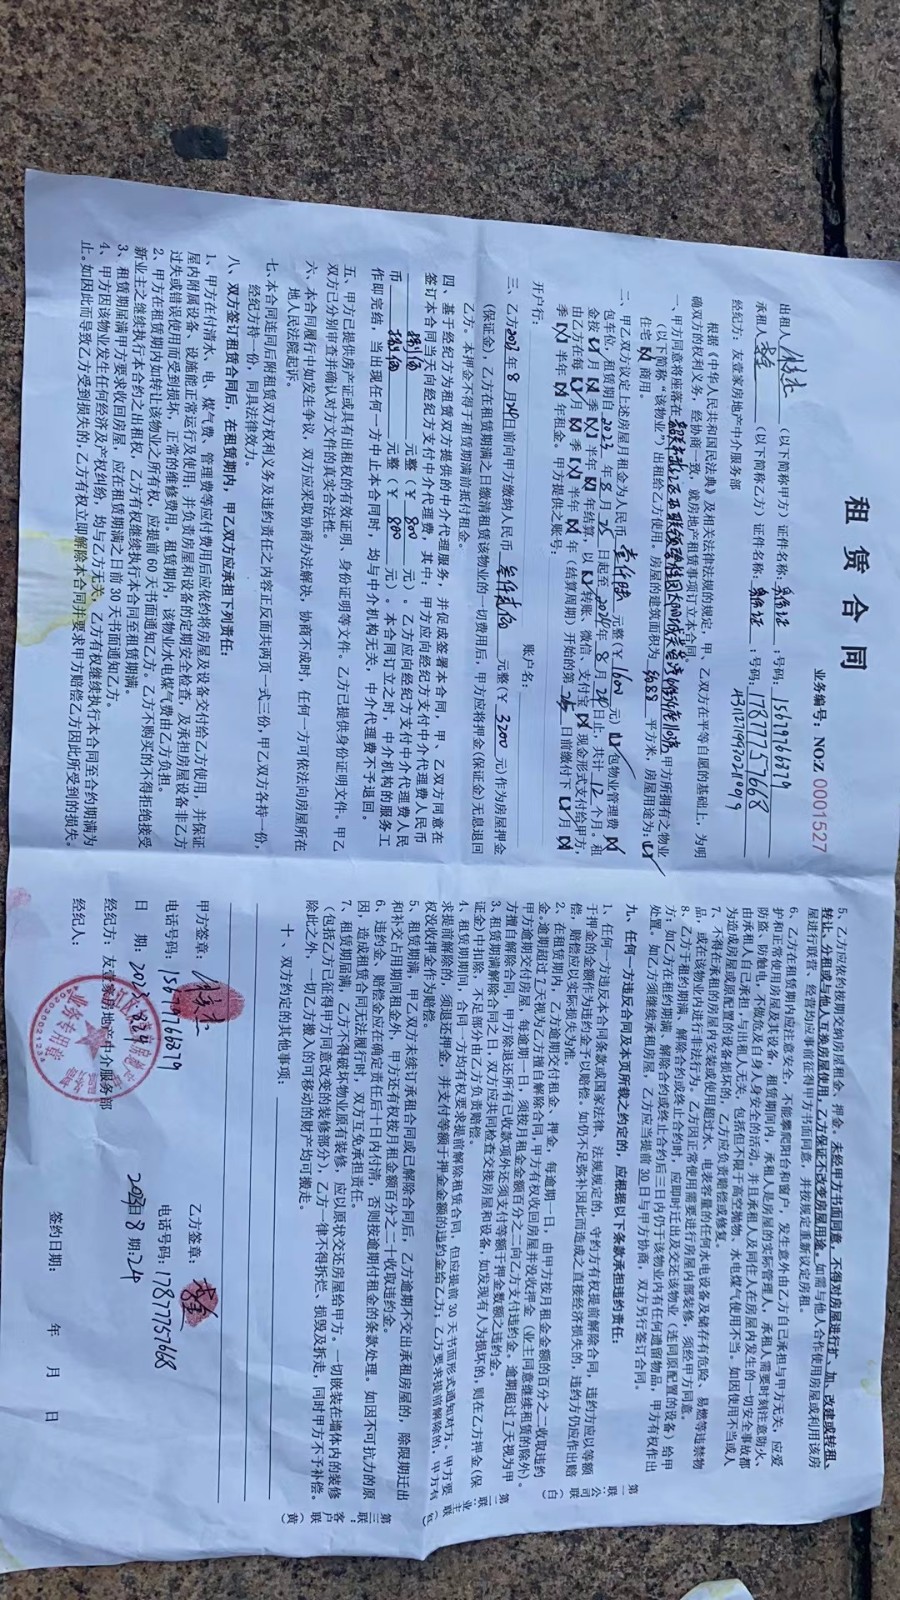 租赁合同
业务编号：NOZ 0001527
出租人 （以下简称甲方）证件名称：身份证 ；号码：15679766379
承租人 （以下简称乙方）证件名称：身份证 ；号码：17877757668
经纪方：友壹家房地产中介服务部
根据《中华人民共和国民法典》及相关法律法规的规定，甲、乙双方在平等自愿的基础上，为明
确双方的权利义务，经协商一致，就房地产租赁事项订立本合同。
一、甲方同意将座落在 甲方所拥有之物业
（以下简称“该物业”）出租给乙方使用。房屋的建筑面积为 平方米，房屋用途为：
住宅 商用。
二、甲乙双方议定上述房屋月租金为人民币 壹仟陆 元整（￥1600 元） 包物业管理费
包年位，租赁期自2023年8月 日起至 年8月 日止，共计12个月。租
金按 月 季 半年 年结算，以 转账、微信、支付宝 现金形式支付给甲方，
由乙方在每 月 季 半年 年（结算周期）开始的第 日前缴付下 月
季 半年 年租金。甲方提供之账号：
开户行： 账户名：
三、乙方 年8月 日前向甲方缴纳人民币 叁仟贰佰 元整（￥3200 元）作为房屋押金
（保证金），乙方在租赁期满之日缴清租赁该物业的一切费用后，甲方应将押金（保证金）无息退回
乙方。本押金不得于租赁期满前抵付租金。
四、基于经纪方为租赁双方提供的中介代理服务，并促成签署本合同，甲、乙双方同意在
签订本合同当天向经纪方支付中介代理费，其中，甲方应向经纪方支付中介代理费人民币
捌佰 元整（￥800 元）。乙方应向经纪方支付中介代理费人民
币 捌佰 元整（￥800 元）。本合同订立之时，中介机构的服务工
作即完结，当出现任何一方中止本合同时，均与中介机构无关，中介代理费不予退回。
五、甲方已提供房产证或具有出租权的有效证明、身份证明等文件。乙方已提供身份证明文件。甲乙
双方已分别审查并确认对方文件的真实合法性。
六、本合同履行中如发生争议，双方应采取协商办法解决，协商不成时，任何一方可依法向房屋所在
地人民法院起诉。
七、本合同连同后附租赁双方权利义务及违约责任之内容正反面共两页一式三份，甲乙双方各持一份，
经纪方持一份，同具法律效力。
八、双方签订租赁合同后，在租赁期内，甲乙双方应承担下列责任：
1、甲方在付清水、电、煤气费、管理费等应付费用后应依约将房屋及设备交付给乙方使用，并保证
屋内附属设备、设施能正常运行及使用；并负责房屋和设备的定期安全检查，及承担房屋设备非乙方
过失或错误使用而受到损坏，正常的维修费用。租赁期内，该物业水电煤气费由乙方负担。
2、甲方在租赁期内如转让该物业之所有权，应提前60天书面通知乙方。乙方不购买的不得拒绝接受
新业主之继续执行本合约之出租权，乙方有权继续执行本合同至租赁期满。
3、租赁期届满甲方要求收回房屋，应在租赁期满之日前30天书面通知乙方。
4、甲方因该物业发生任何经济及产权纠纷，均与乙方无关，乙方有权继续执行本合同至合约期满为
止。如因此而导致乙方受到损失的，乙方有权立即解除本合同并要求甲方赔偿乙方因此所受到的损失。
5、乙方应依约按期交纳房屋租金、押金，未经甲方书面同意，不得对房屋进行扩、加、改建或转租、
转让、分租或与他人互换房屋使用，乙方保证不改变房屋用途。如需与他人合作使用房屋或利用该房
屋进行联营，经营均应事前征得甲方书面同意，并按规定重新议定房租。
6、乙方在租赁期内应注意安全，不能攀爬阳台和窗户，发生意外由乙方自己承担与甲方无关，应爱
护和正常使用房屋及其设备，租赁期间内，承租人是房屋的实际管理人，承租人需要时刻注意防火、
防盗、防触电，不做危及自身人身安全的活动。并且承租人及同住人在房屋内发生的一切安全事故都
由承租人自己承担，与出租人无关，包括但不限于高空抛物、水电煤气使用不当。如因使用不当或人
为造成房屋或原配置的设备损坏的，乙方应负责赔偿或修复。
7、不得在承租的房屋内安装或使用超过水、电表容量的任何水电设备及储存有危险、易燃等违禁物
品，或在该物业内进行非法行为。乙方因正常使用需要进行房屋内部装修，须经甲方同意。
8、乙方于租约期满，解除合约或终止合约时，应即时迁出及交还该物业（连同原配置的设备）给甲
方；如乙方在租约期满、解除合约或终止合约后三日内仍于该物业内有任何遗留物品，甲方有权作出
处置，如乙方须继续承租房屋，乙方应当提前30日与甲方协商，双方另行签订合同。
九、任何一方违反合同及本页所载之约定的，应根据以下条款承担违约责任：
1、任何一方违反本合同条款或国家法律、法规规定的，守约方有权提前解除合同，违约方应以等额
于押金的金额作为违约金予以赔偿。如仍不足弥补因此而造成之直接经济损失的，违约方仍应作出赔
偿，赔偿应以实际损失为准。
2、在租赁期内，乙方逾期交付租金、押金，每逾期一日，由甲方按月租金金额的百分之二收取违约
金。逾期超过7天视为乙方擅自解除合同，甲方有权收回房屋并没收押金（业主同意继续租赁的除外）
甲方逾期交付房屋，每逾期一日，须按月租金金额百分之二向乙方支付违约金。逾期超过7天视为甲
方擅自解除合同，甲方除退还所有已收款项外还须支付等额于押金数额之违约金。
3、租赁期满解除合同之日，双方应共同检查交接房屋和设备，如发现有人为损坏的，则在乙方押金（保
证金）中扣除，不足部分由乙方负责赔偿。
4、租赁期期间，合同一方均有权要求提前解除租赁合同，但应提前30天书面形式通知对方。甲方要
求提前解除的，须退还押金，并支付等额于押金金额的违约金给乙方；乙方要求提前解除的，甲方有
权没收押金作为赔偿。
5、租赁期满，甲乙双方未续订承租合同或已解除合同后，乙方逾期不交出承租房屋的，除限期迁出
和补交占用期间租金外，甲方还有权按月租金额百分之二十收取违约金。
6、违约金、赔偿金应在确定责任后十日内付清，否则按逾期付租金的条款处理。如因不可抗力的原
因，造成租赁合同无法履行时，双方互免承担责任。
7、租赁期届满，乙方不得破坏物业原有装修，应以原状交还房屋给甲方。一切嵌装在墙体内的装修
（包括乙方已征得甲方同意改变的装修部分），乙方一律不得拆烂、损毁及拆走，同时甲方不予补偿。
除此之外，一切乙方搬入的可移动的财产均可搬走。
十、双方约定的其他事项：
甲方签章： 乙方签章：
电话号码：15679766379 电话号码：17877757668
日 期：2023.8.24 日 期：
经纪方：友壹家房地产中介服务部
经纪人： 签约日期： 年 月 日
业务专用章
第一联：公司（白）
第二联：业主（红）
第三联：客户（黄）